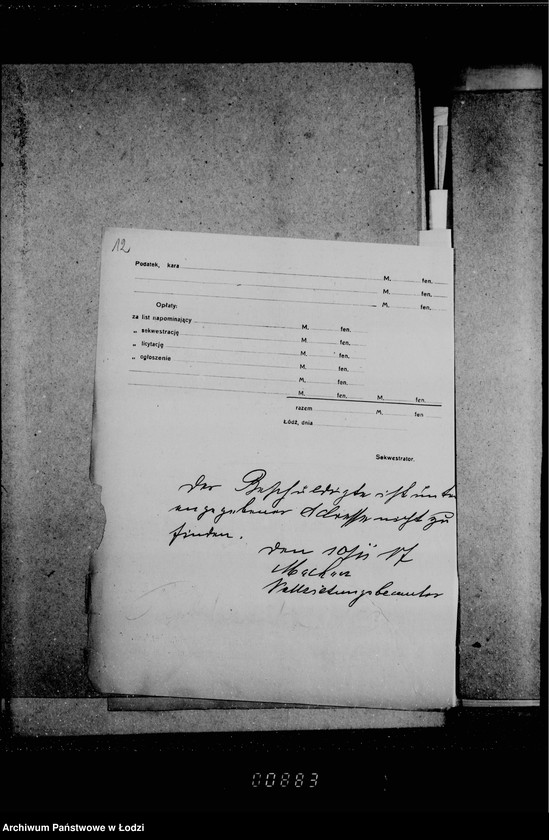 12
Podatek, kara M. fen.
M. fen.
M. fen.
Opłaty:
za list napominający M. fen.
„ sekwestrację M. fen.
„ licytację M. fen.
„ ogłoszenie M. fen.
M. fen.
M. fen. M. fen.
razem M. fen
Łódź, dnia
Sekwestrator.
Der Beschuldigte ist unter
angegebener Adresse nicht zu
finden.
den 10/II 17
Vollziehungsbeamter
00883
Archiwum Państwowe w Łodzi